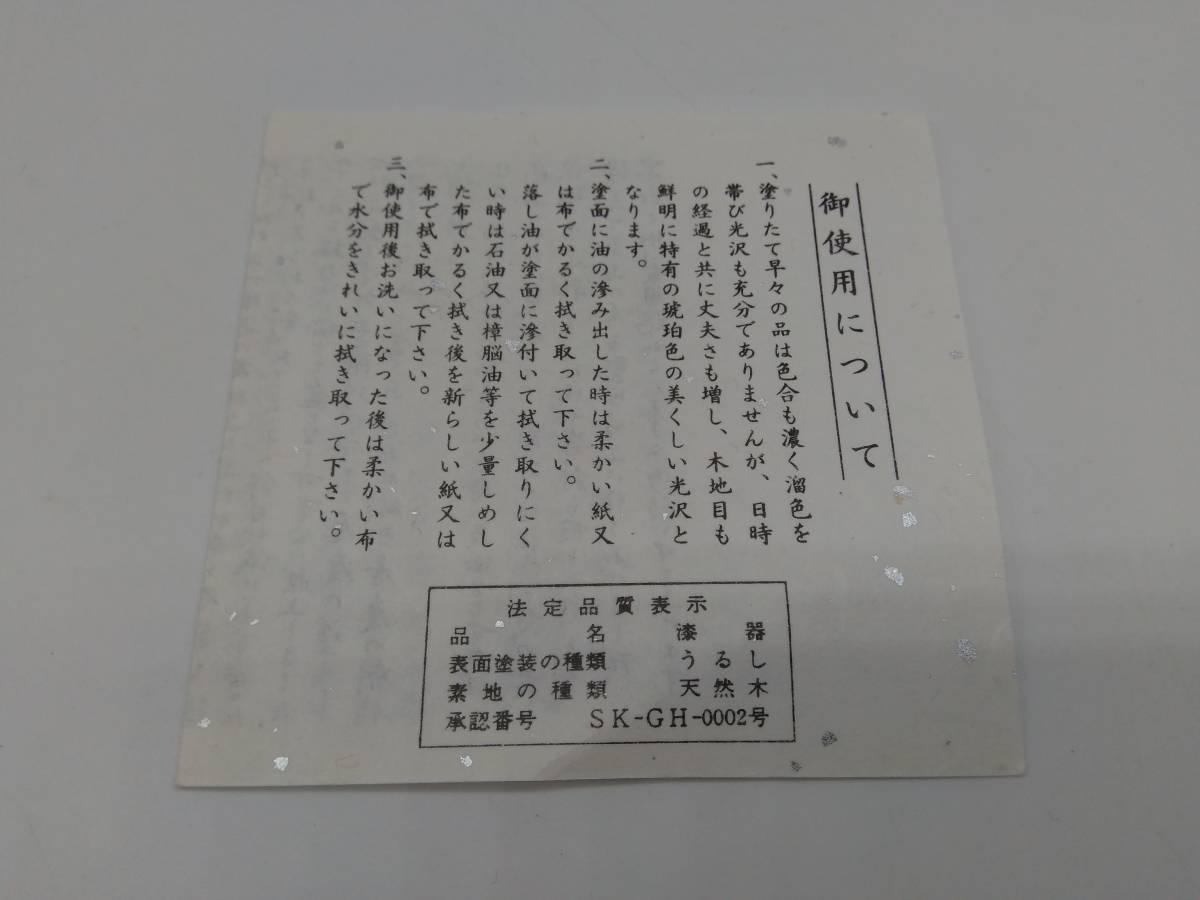 御使用について
一、塗りたて早々の品は色合も濃く溜色を
帯び光沢も充分でありませんが、日時
の経過と共に丈夫さも増し、木地目も
鮮明に特有の琥珀色の美くしい光沢と
なります。
二、塗面に油の滲み出した時は柔かい紙又
は布でかるく拭き取って下さい。
落し油が塗面に滲付いて拭き取りにく
い時は石油又は樟脳油等を少量しめし
た布でかるく拭き後を新らしい紙又は
布で拭き取って下さい。
三、御使用後お洗いになった後は柔かい布
で水分をきれいに拭き取って下さい。
法定品質表示
品名 漆器
表面塗装の種類 うるし
素地の種類 天然木
承認番号 SK-GH-0002号